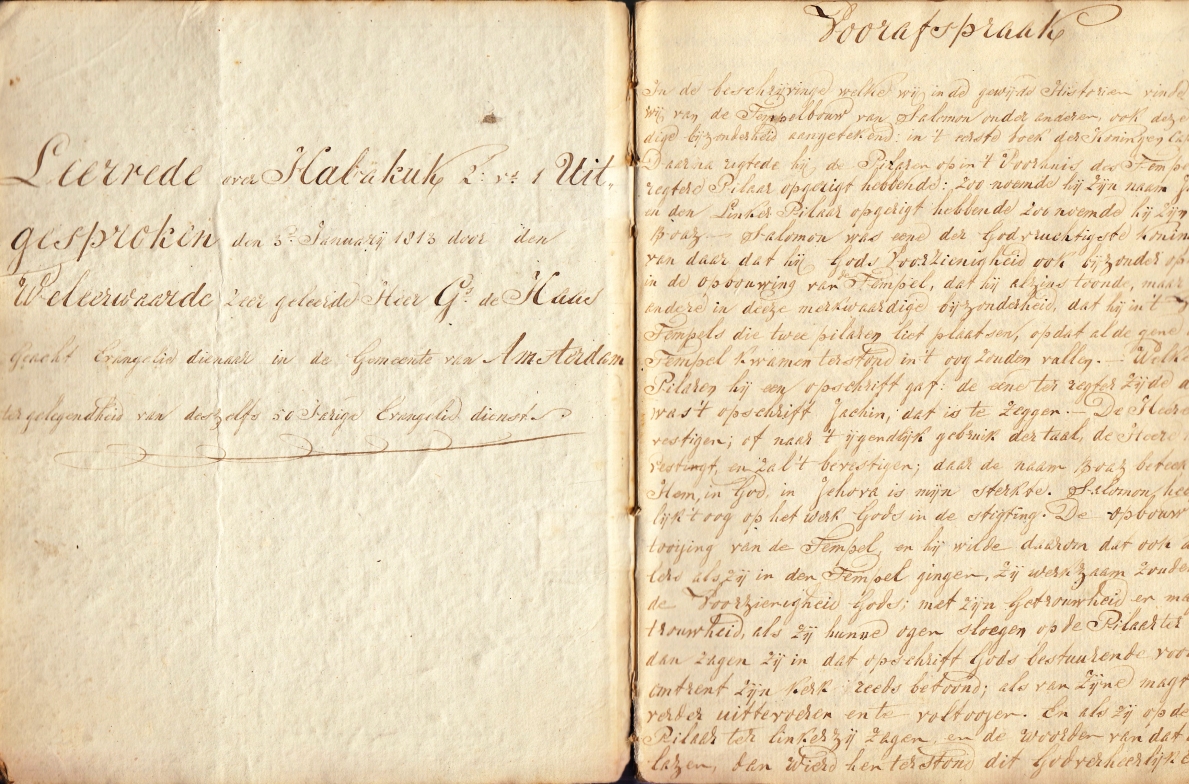 Leerrede over Habakuk 2: vs. 1 Uit-
gesproken den 3e January 1813 door den
Weleerwaarde zeer geleerde Heer Gt de Haas
Geacht Evangelie dienaar in de Gemeente van Amsterdam
ter gelegendheid van deszelfs 50 Jarige Evangelie dienst.
Voorafspraak
In de beschrijvinge welke wij in de gewijde Historien vinde
wij van de Tempelbouw van Salomon onder anderen, ook deze
dige bijzonderheid aangetekend: in 't eerste boek der Koningen
Daarna regtede hij de Pilaren op in 't Voorhuis des Tempe
regter Pilaar opgerigt hebbende: zoo noemde hij zijn naam
en den Linker Pilaar opgerigt hebbende zoo noemde hij zijn
Boaz — Salomon was eene der Godvruchtigste
van daar dat hij Gods Voorzienigheid ook bijzonder
in de opbouwing van Tempel, dat hij alzins toonde, maar
andere in deeze merkwaardige bijzonderheid, dat hij in 't
Tempels die twee pilaren liet plaatsen, opdat al de gene
Tempel kwamen terstond in 't oog zouden vallen. — Welke
Pilaren hij een opschrift gaf: de eene ter regter zijde
was 't opschrift Jachin, dat is te zeggen — De Heere
vestigen; of naar 't ijgendlijk gebruik der taal, de Heere
vestingt, en zal 't bevestigen; daar de naam Boaz beteek
Hem, in God, in Jehova is mijn sterkte. Salomon, hee
lijk 't oog op het werk Gods in de stigting. De opbouw
tooijing van de Tempel, en hij wilde daarom dat ook
lers als zij in den Tempel gingen, zij werkzaam zouden
de Voorzienigheid Gods; met zijn Getrouwheid er ma
trouwheid, als zij hunne ogen sloegen op de Pilaar ter
dan zagen zij in dat opschrift Gods bestuurende voor
omtrent zijn Kerk reeds betoond; als van zijne magt
verder uittevoeren en te voltooijen. En als zij op de
Pilaar ter linkerzij zagen en de woorden van dat
lazen, dan wierd hen terstond dit Godverheerlijke